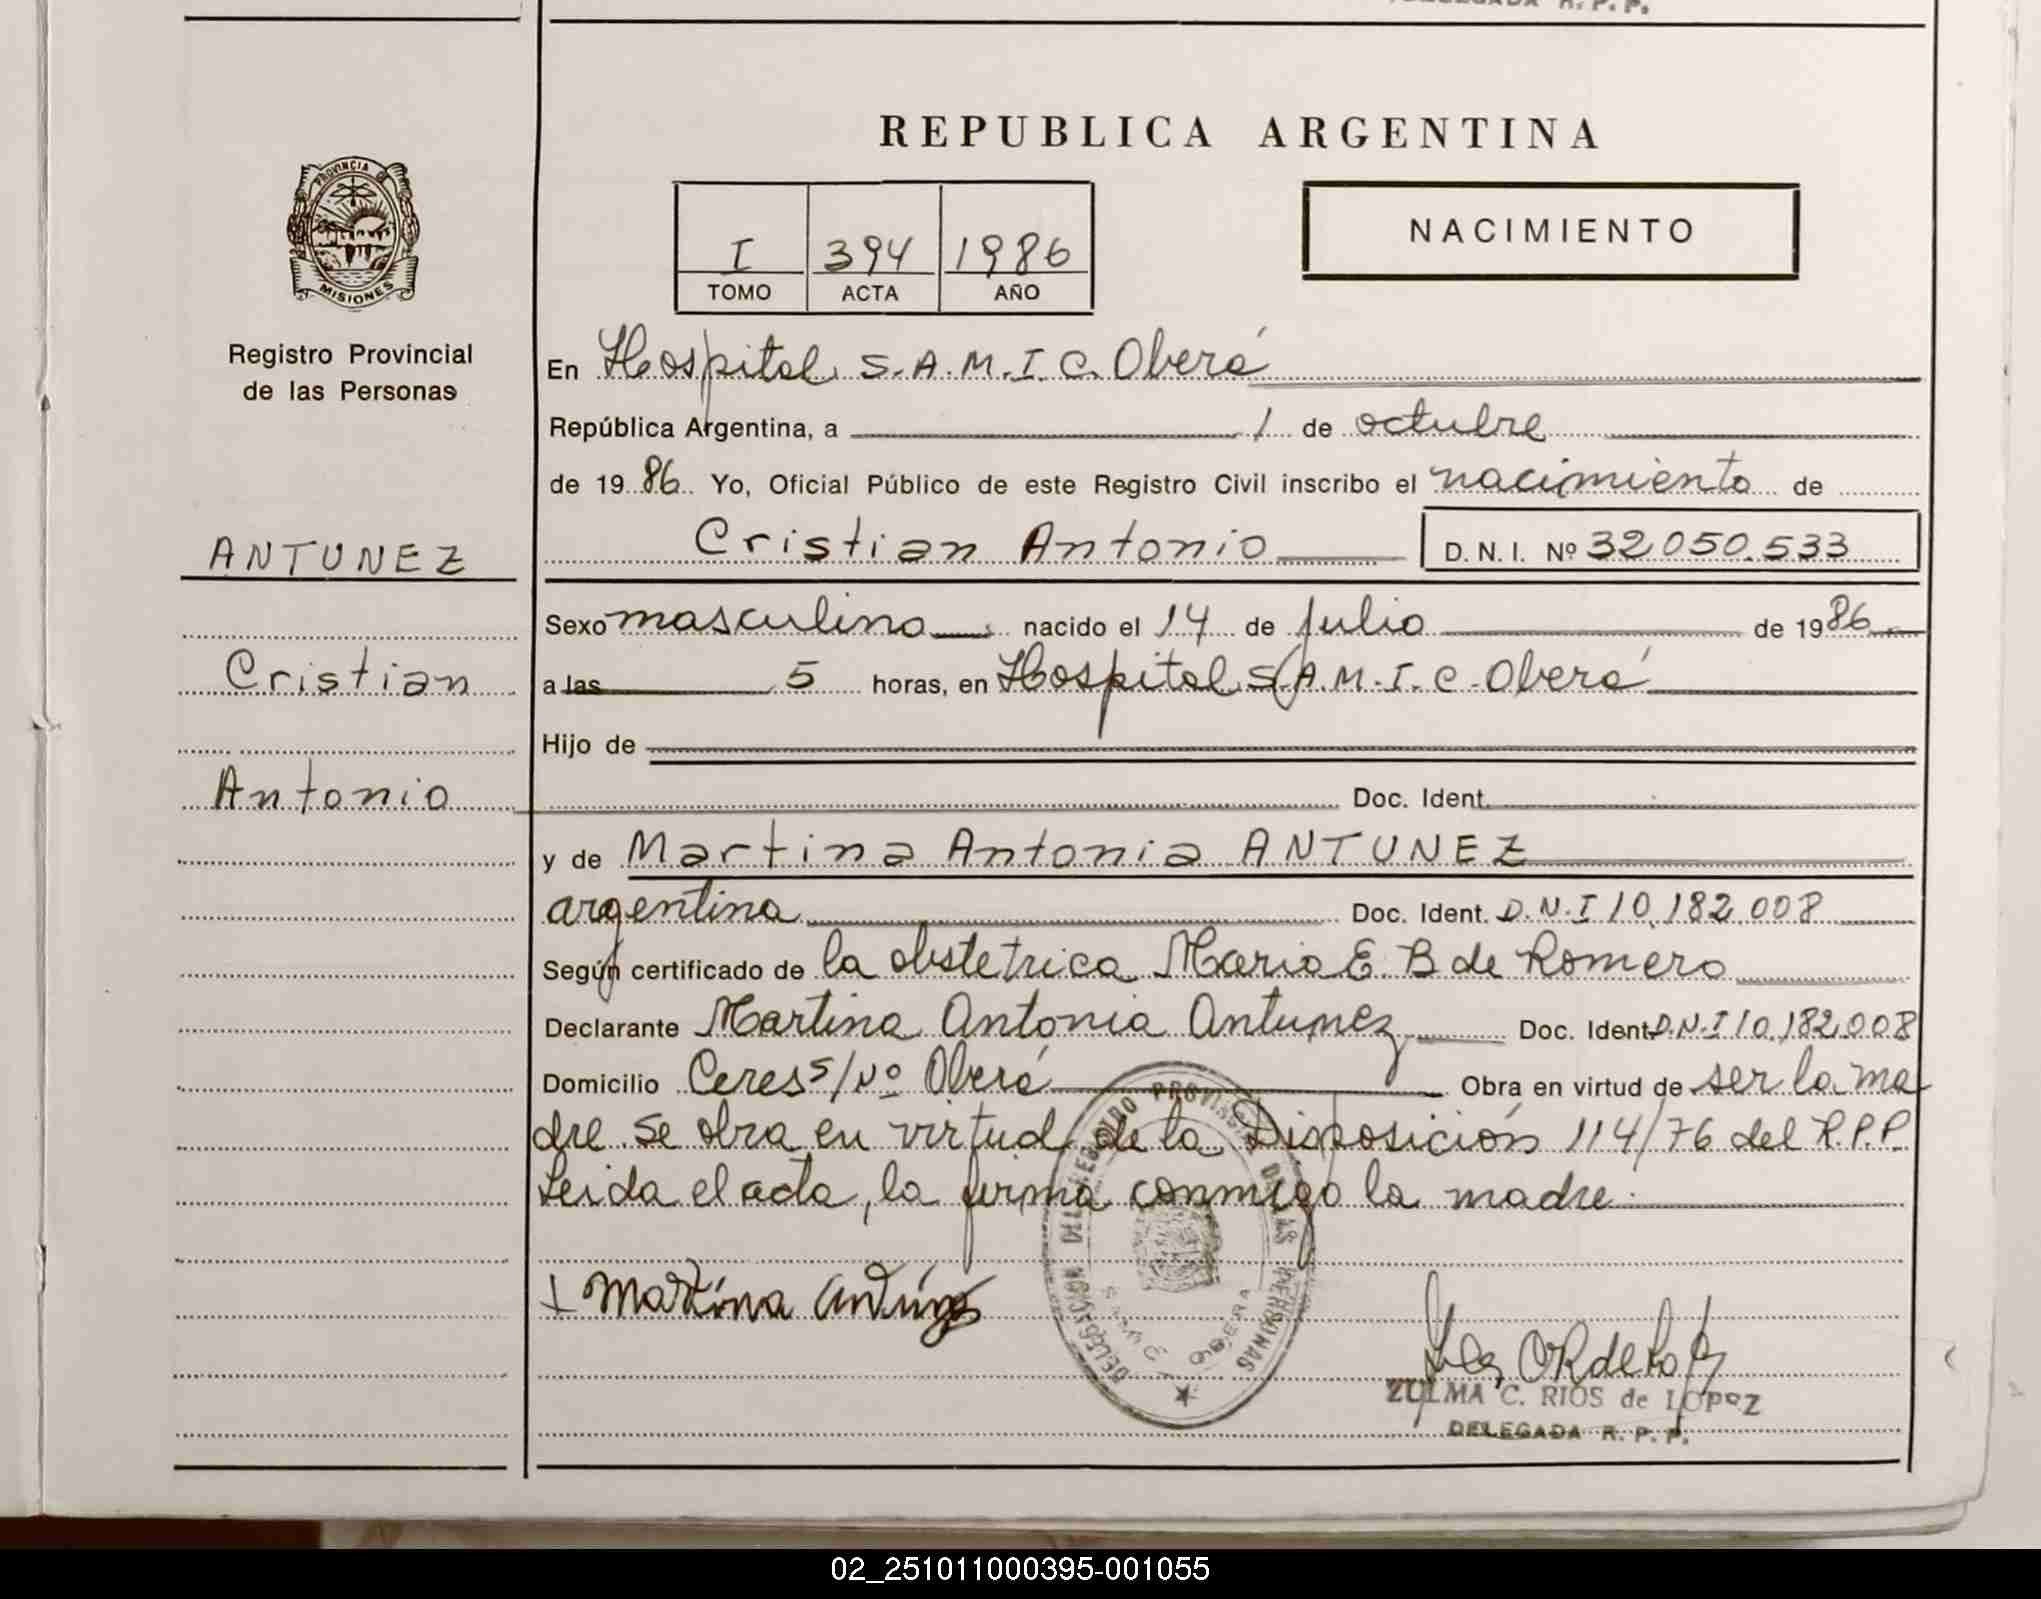 DELEGADA R. P. P.
REPUBLICA ARGENTINA
PROVINCIA DE
MISIONES
I 394 1986
TOMO ACTA AÑO
NACIMIENTO
Registro Provincial
de las Personas
En Hospital S.A.M.I.C. Oberá
República Argentina, a 1 de octubre
de 1986 Yo, Oficial Público de este Registro Civil inscribo el nacimiento de
Cristian Antonio D.N.I. Nº 32.050.533
ANTUNEZ
Cristian
Antonio
Sexo masculino nacido el 14 de julio de 1986
a las 5 horas, en Hospital S.A.M.I.C. Oberá
Hijo de
Doc. Ident.
y de Martina Antonia ANTUNEZ
argentina Doc. Ident. D.N.I 10.182.008
Según certificado de la obstetrica Maria E. B de Romero
Declarante Martina Antonia Antunez Doc. Ident. D.N.I 10.182.008
Domicilio Ceres s/Nº Oberá Obra en virtud de ser la ma
dre se obra en virtud de la Disposición 114/76 del R.P.P
Leida el acta, la firma conmigo la madre.
DELEGACION DEL REGISTRO PROVINCIAL DE LAS PERSONAS
OBERA
Martina Antúnez
ZULMA C. RIOS de LOPEZ
DELEGADA R. P. P.
02_251011000395-001055